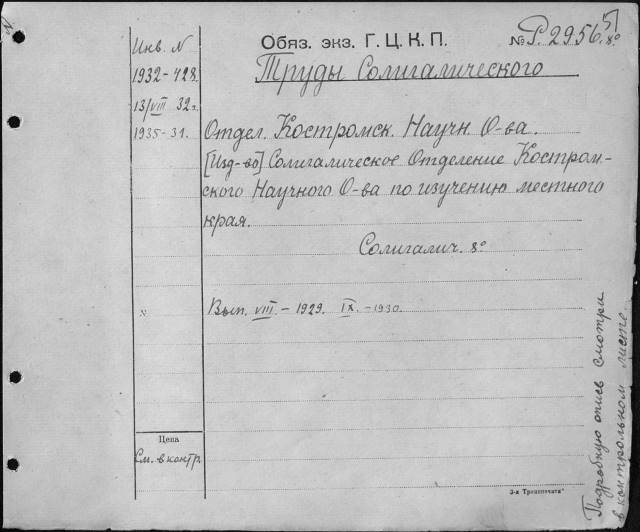 Инв. N
1932-428.
13/VIII 32г.
1935-31.
Обяз. экз. Г. Ц. К. П.
№ Р.2956 5/8º
Труды Солигалического
Отдел. Костромск. Научн. О-ва.
[Изд-во] Солигалическое Отделение Костром-
ского Научного О-ва по изучению местного
края.
Солигалич. 8º
Вып. VIII. - 1929. IX. - 1930.
Цена
См. в контр.
3-я "Транспечать"
Подробную опись смотри
в контрольном листе.